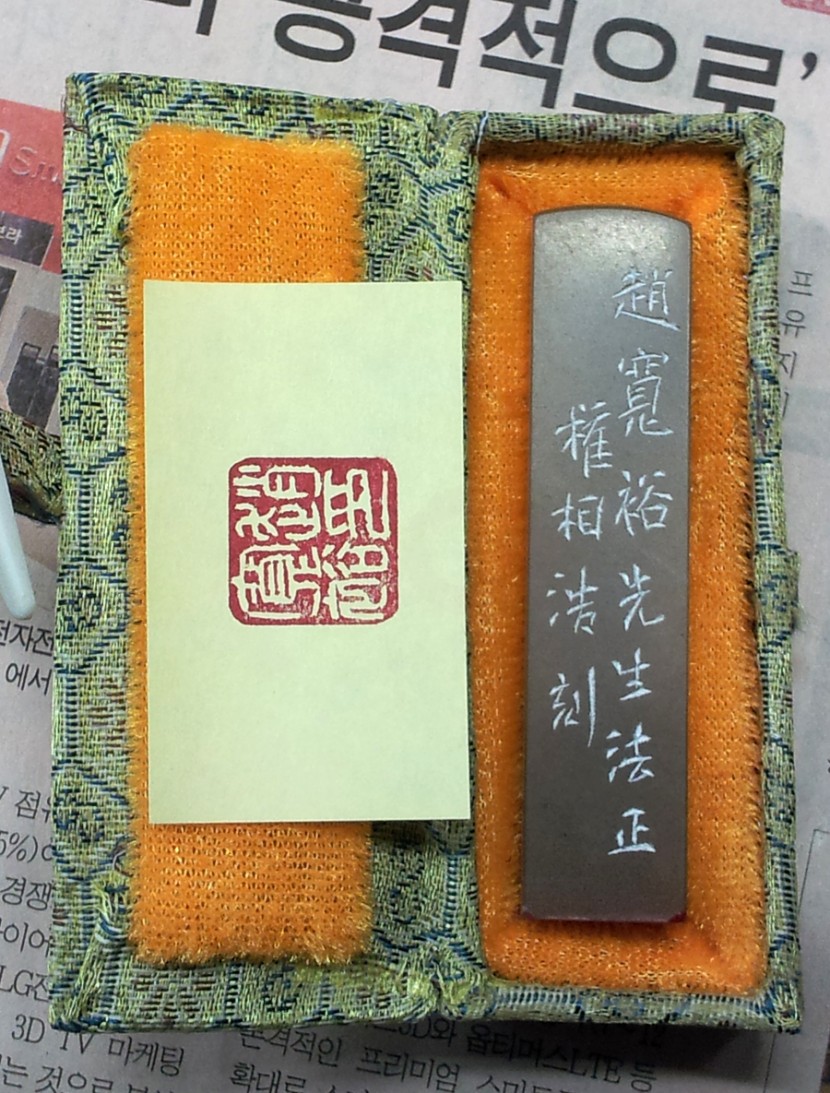 공격적으로’
趙寬裕先生法正
権相浩刻
보라
프
유
지
전자전
에서
점유
5%)
경쟁
이어
LG전
3D TV 마케팅
는 것으로
3D와 옵티머스LTE 등
본격적인 프리미엄
확대로